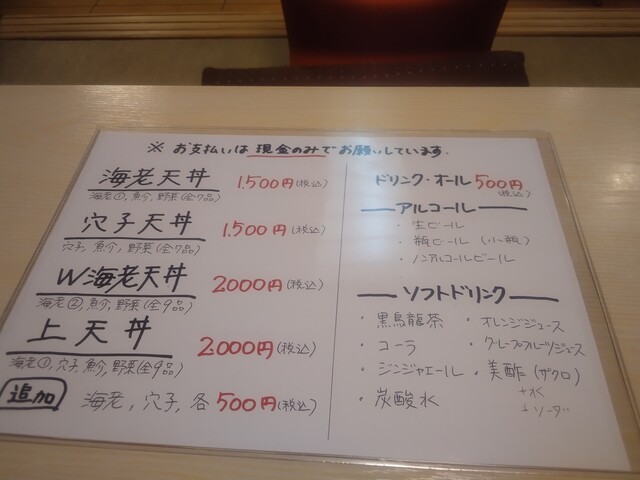 ※ お支払いは 現金のみでお願いしています.
海老天丼 1.500円(税込)
海老①, 魚介, 野菜(全7品)
穴子天丼 1.500円(税込)
穴子, 魚介, 野菜(全7品)
W海老天丼 2000円(税込)
海老②, 魚介, 野菜(全9品)
上天丼 2.000円(税込)
海老①, 穴子, 魚介, 野菜(全9品)
追加 海老, 穴子, 各500円(税込)
ドリンク・オール500円
(税込)
アルコール
・生ビール
・瓶ビール (小瓶)
・ノンアルコールビール
ソフトドリンク
・黒烏龍茶 ・オレンジジュース
・コーラ ・グレープフルーツジュース
・ジンジャエール ・美酢(ザクロ)
・炭酸水 +水
+ソーダ